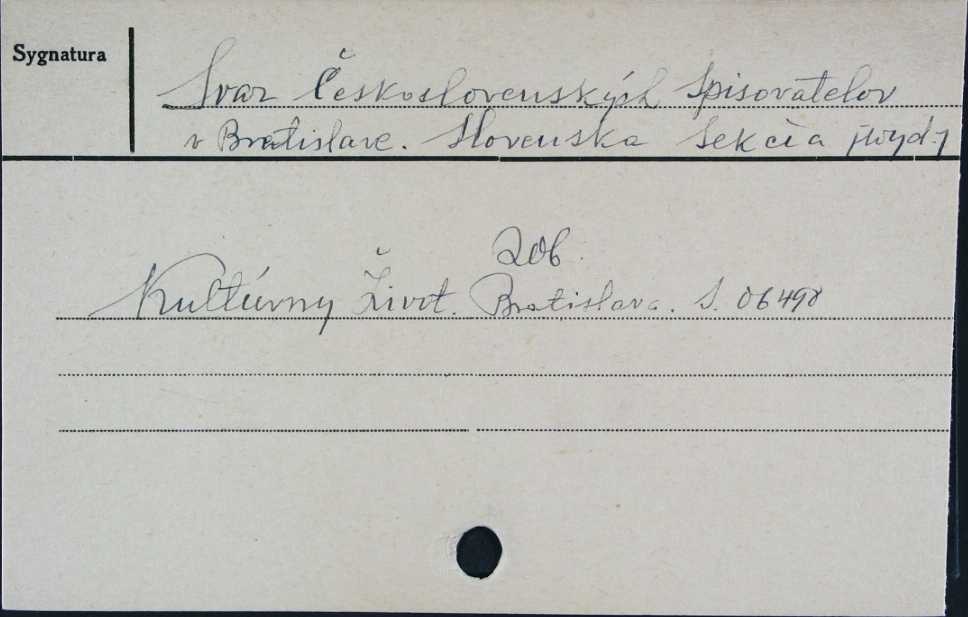 Sygnatura
Svaz Československých Spisovatelov
v Bratislave. Slovenska Sekcia [wyd.]
Kultúrny Život. Bratislava. S. 06498
Zob.